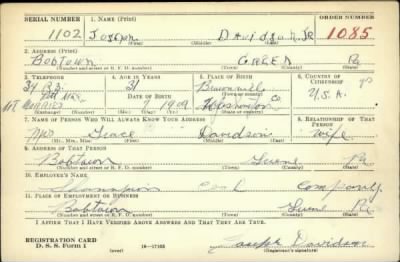 SERIAL NUMBER
1. NAME (Print)
ORDER NUMBER
1102 Joseph Davidson Jr 1085
(First) (Middle) (Last)
2. ADDRESS (Print)
Bobtown Greene Pa
(Number and street or R. F. D. number) (Town) (County) (State)
3. TELEPHONE
4. AGE IN YEARS
5. PLACE OF BIRTH
6. COUNTRY OF CITIZENSHIP
34
31
DATE OF BIRTH
Washington Co
U.S.A.
Mt Morris
7 1909
(Exchange) (Number)
(Mo.) (Day) (Yr.)
(State or country)
7. NAME OF PERSON WHO WILL ALWAYS KNOW YOUR ADDRESS
8. RELATIONSHIP OF THAT PERSON
Mrs Grace Davidson wife
(Mr., Mrs., Miss) (First) (Middle) (Last)
9. ADDRESS OF THAT PERSON
Bobtown Greene Pa
(Number and street or R. F. D. number) (Town) (County) (State)
10. EMPLOYER'S NAME
Shannopin Coal Company
11. PLACE OF EMPLOYMENT OR BUSINESS
Bobtown Greene Pa
(Number and street or R. F. D. number) (Town) (County) (State)
I AFFIRM THAT I HAVE VERIFIED ABOVE ANSWERS AND THAT THEY ARE TRUE.
REGISTRATION CARD
D. S. S. Form 1
(over)
16—17105
Joseph Davidson
(Registrant's signature)